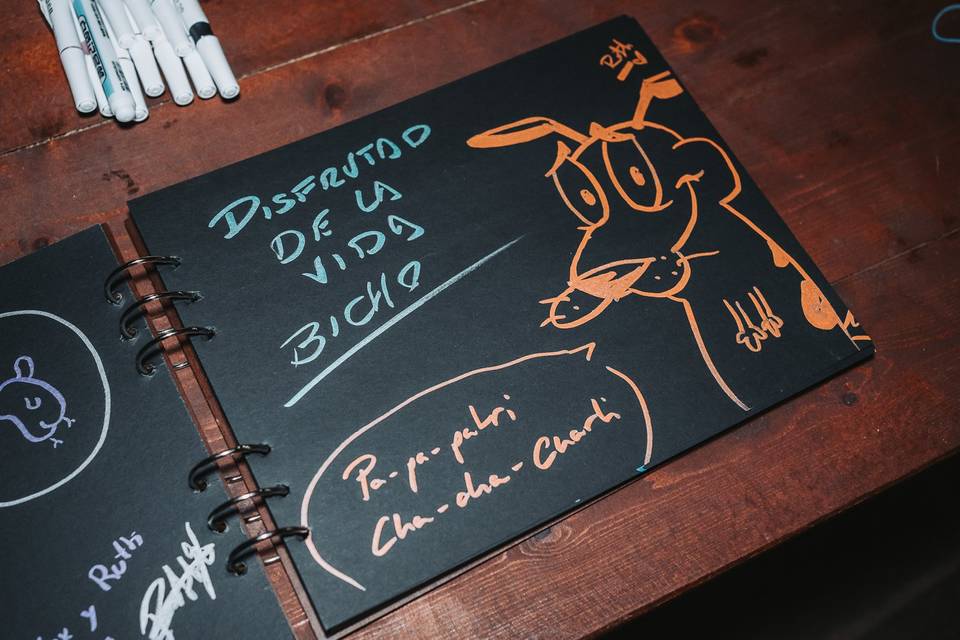 DISFRUTAD
DE LA
VIDA
BICHO
Ruth
Pa-pa-patri
Cha-cha-Charli
y Ruth